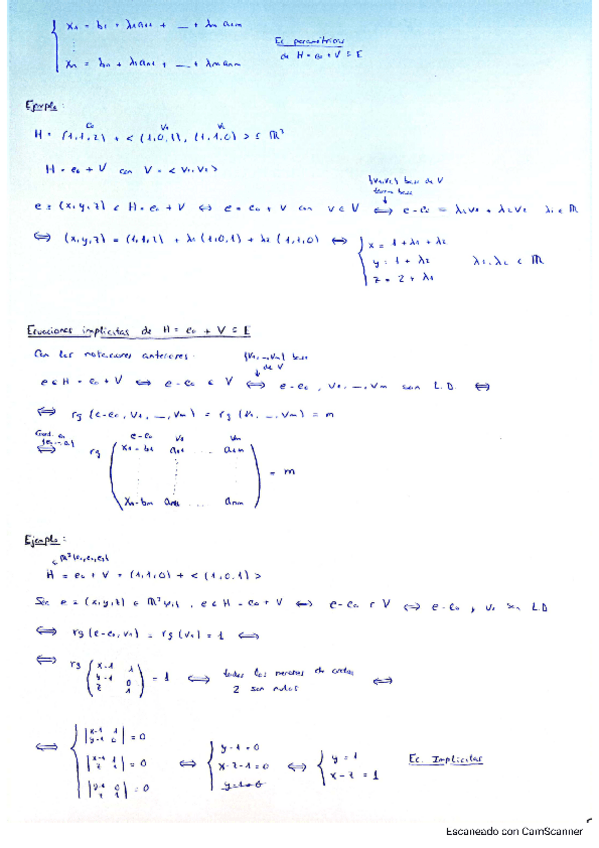 x₁ = b₁ + λ₁a₁₁ + ... + λₘa₁ₘ
⋮
xₙ = bₙ + λ₁aₙ₁ + ... + λₘaₙₘ
Ec paramétricas
de H = e₀ + V ⊆ E
Ejemplo:
H = (1,1,2) + < (1,0,1), (1,1,0) > ⊆ ℝ³
e₀ v₁ v₂
H = e₀ + V con V = < v₁, v₂ >
{v₁,v₂} base de V
e = (x,y,z) ∈ H = e₀ + V ⟺ e = e₀ + v con v ∈ V ⟺ e - e₀ = λ₁v₁ + λ₂v₂ λᵢ ∈ ℝ
⟺ (x,y,z) = (1,1,2) + λ₁(1,0,1) + λ₂(1,1,0) ⟺
x = 1 + λ₁ + λ₂
y = 1 + λ₂
z = 2 + λ₁
λ₁, λ₂ ∈ ℝ
Ecuaciones implícitas de H = e₀ + V ⊆ E
Con las notaciones anteriores:
{v₁, ..., vₘ} base
de V
e ∈ H = e₀ + V ⟺ e - e₀ ∈ V ⟺ e - e₀, v₁, ..., vₘ son L.D ⟺
⟺ rg (e-e₀, v₁, ..., vₘ) = rg (v₁, ..., vₘ) = m
e-e₀ v₁ vₘ
⟺ rg
x₁-b₁ a₁₁ ... a₁ₘ
⋮
xₙ-bₙ aₙ₁ ... aₙₘ
= m
Ejemplo:
H = e₀ + V = (1,1,0) + < (1,0,1) >
Sea e = (x,y,z) ∈ ℝ³, e ∈ H = e₀ + V ⟺ e-e₀ ∈ V ⟺ e-e₀, v₁ son LD
⟺ rg (e-e₀, v₁) = rg (v₁) = 1 ⟺
⟺ rg
x-1 1
y-1 0
z 1
= 1 ⟺ todos los menores de orden
2 son nulos ⟺
⟺
|x-1 1 / y-1 0| = 0
|x-1 1 / z 1| = 0
|y-1 0 / z 1| = 0
⟺
y-1 = 0
x-z-1 = 0
y-1=0
⟺
y = 1
x-z = 1
Ec. Implícitas
Escaneado con CamScanner